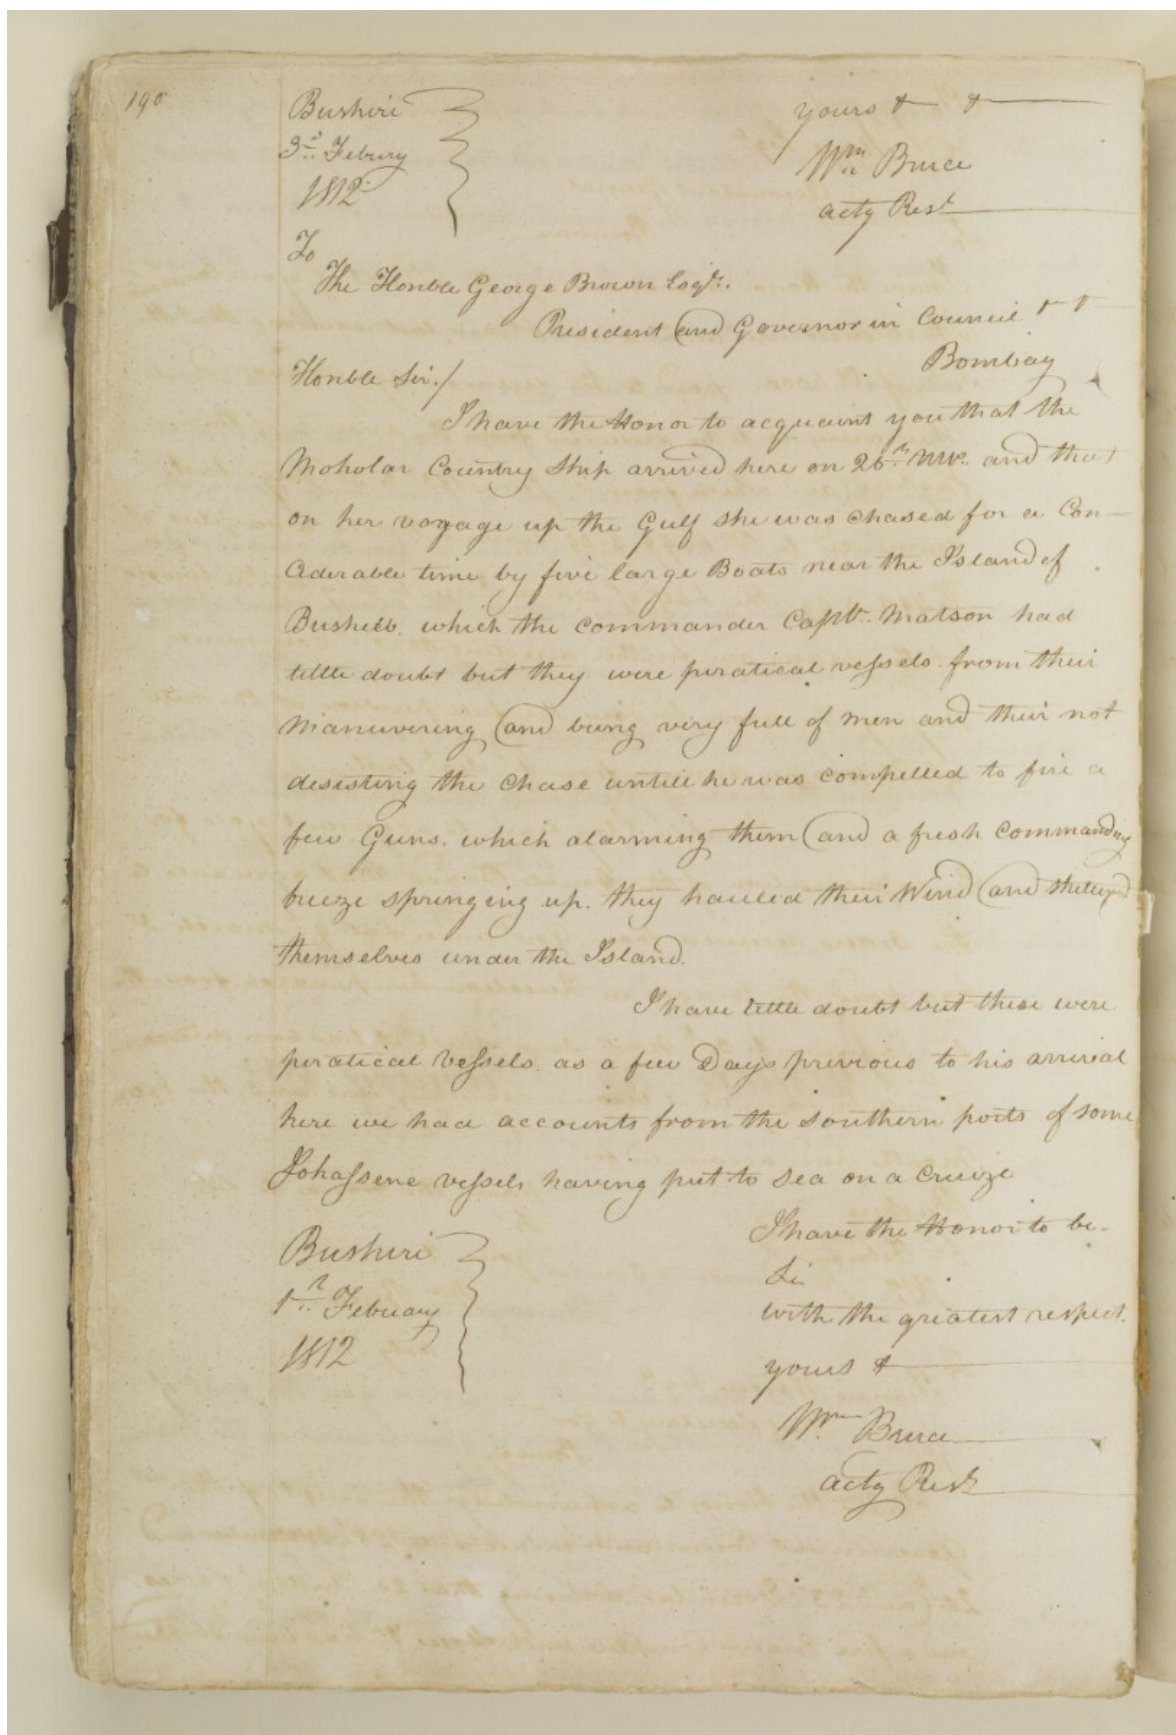 190
Bushire
3d.. Febury
1812
yours & &
Wm Bruce
acty Rest
To
The Honble George Brown Esqr.
President and Governor in Council & &
Bombay
Honble Sir./
I have the Honor to acquaint you that the
Country Ship arrived here on 26th and that
on her voyage up the Gulf she was chased for a Con-
ciderable time by five large Boats near the Island of
which the Commander Capt.. Matson had
little doubt but they were piratical vessels. from their
Manuvering and being very full of men and their not
desisting the Chase untill he was Compelled to fire a
few Guns. which alarming them and a fresh Commanding
breeze springing up. they hauled their Wind and
themselves under the Island.
I have little doubt but these were
piratical Vessels. as a few Days previous to his arrival
here we had accounts from the Southern ports of some
Johassene vessels having put to Sea on a Cruize
I have the Honor to be-
Sir
with the greatest respect.
yours &
Wm. Bruce
acty Rest
Bushire
1.. Febuary
1812